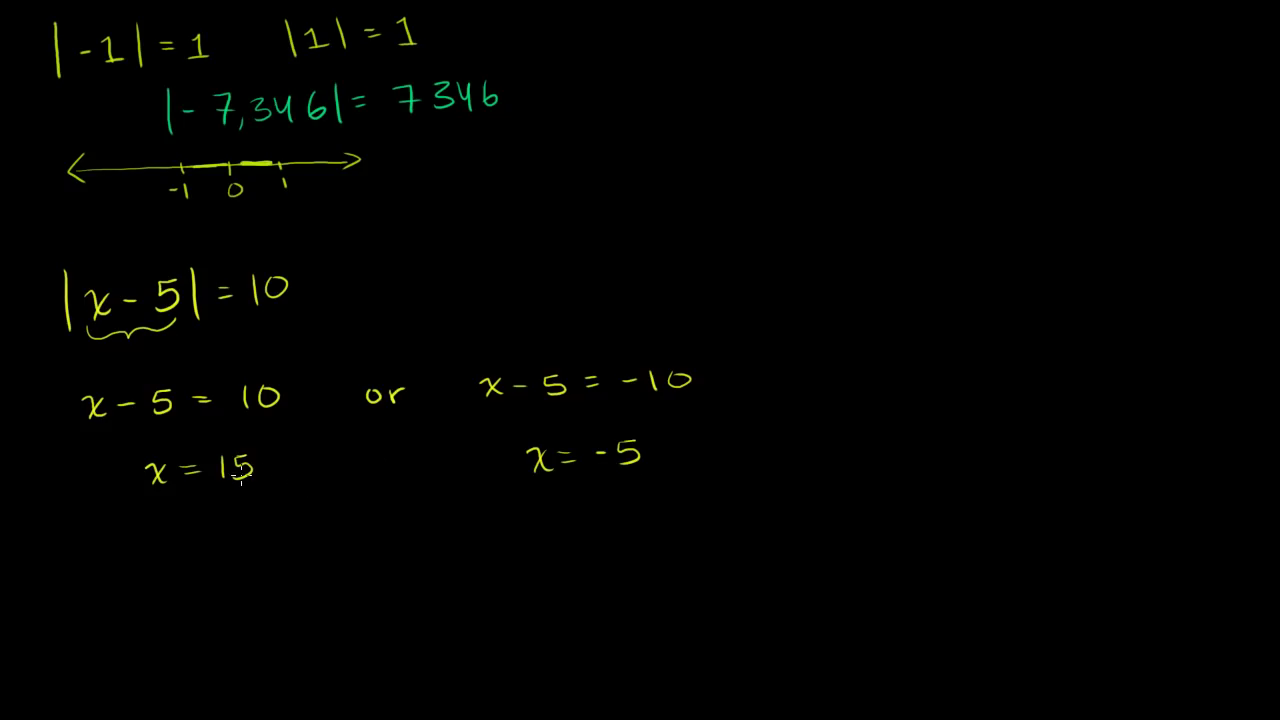 |-1| = 1 |1| = 1
|-7,346| = 7346
-1 0 1
|x - 5| = 10
x - 5 = 10 or x - 5 = -10
x = 15 x = -5